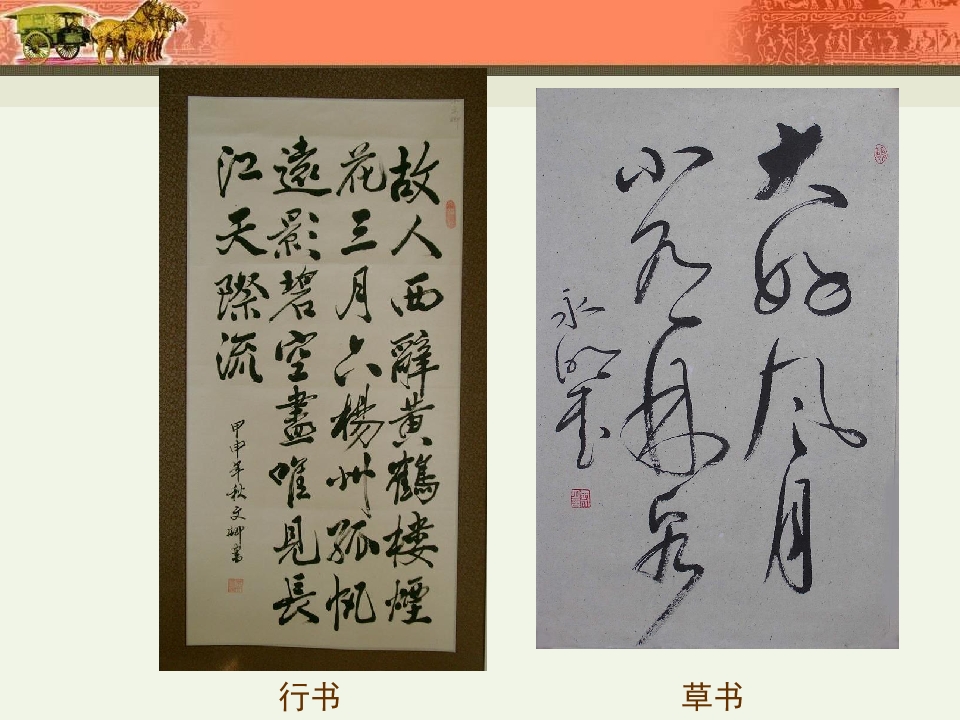 故人西辭黃鶴樓煙
花三月下楊州孤帆
遠影碧空盡唯見長
江天際流
甲申年秋文卿書
大好风月
小有林泉
永
行书
草书